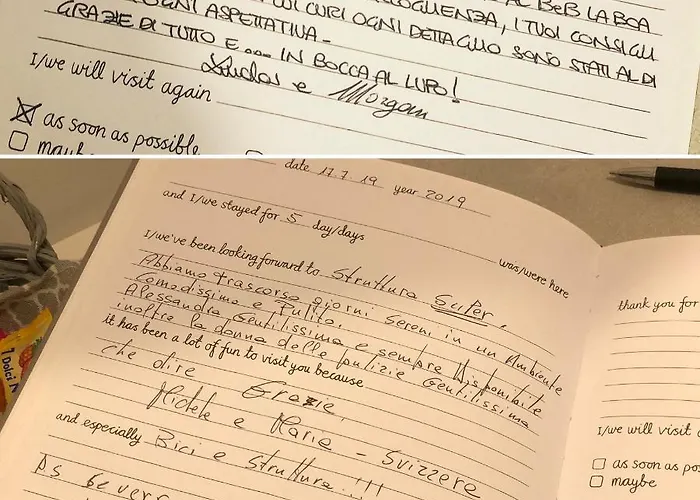 AL BeB LA BOA
I TUOI CONSIGLI
OGNI ASPETTATIVA - CURI OGNI DETTAGLIO SONO STATI AL DI
GRAZIE DI TUTTO E.... IN BOCCA AL LUPO!
e Morgan
I/we will visit again
as soon as possible
maybe
date 17.7.19 year 2019
and I/we stayed for 5 day/days
was/were here
I/we've been looking forward to Struttura Super,
Abbiamo trascorso giorni sereni in un Ambiente
Comodissimo e Pulito.
Alessandra Gentilissima e sempre Disponibile
inoltre la donna delle pulizie Gentilissima
it has been a lot of fun to visit you because
che dire Grazie,
Michele e Maria - Svizzera
and especially Bici e Struttura !!!
thank you for
I/we will visit
as soon as pos
maybe
1 Dolci